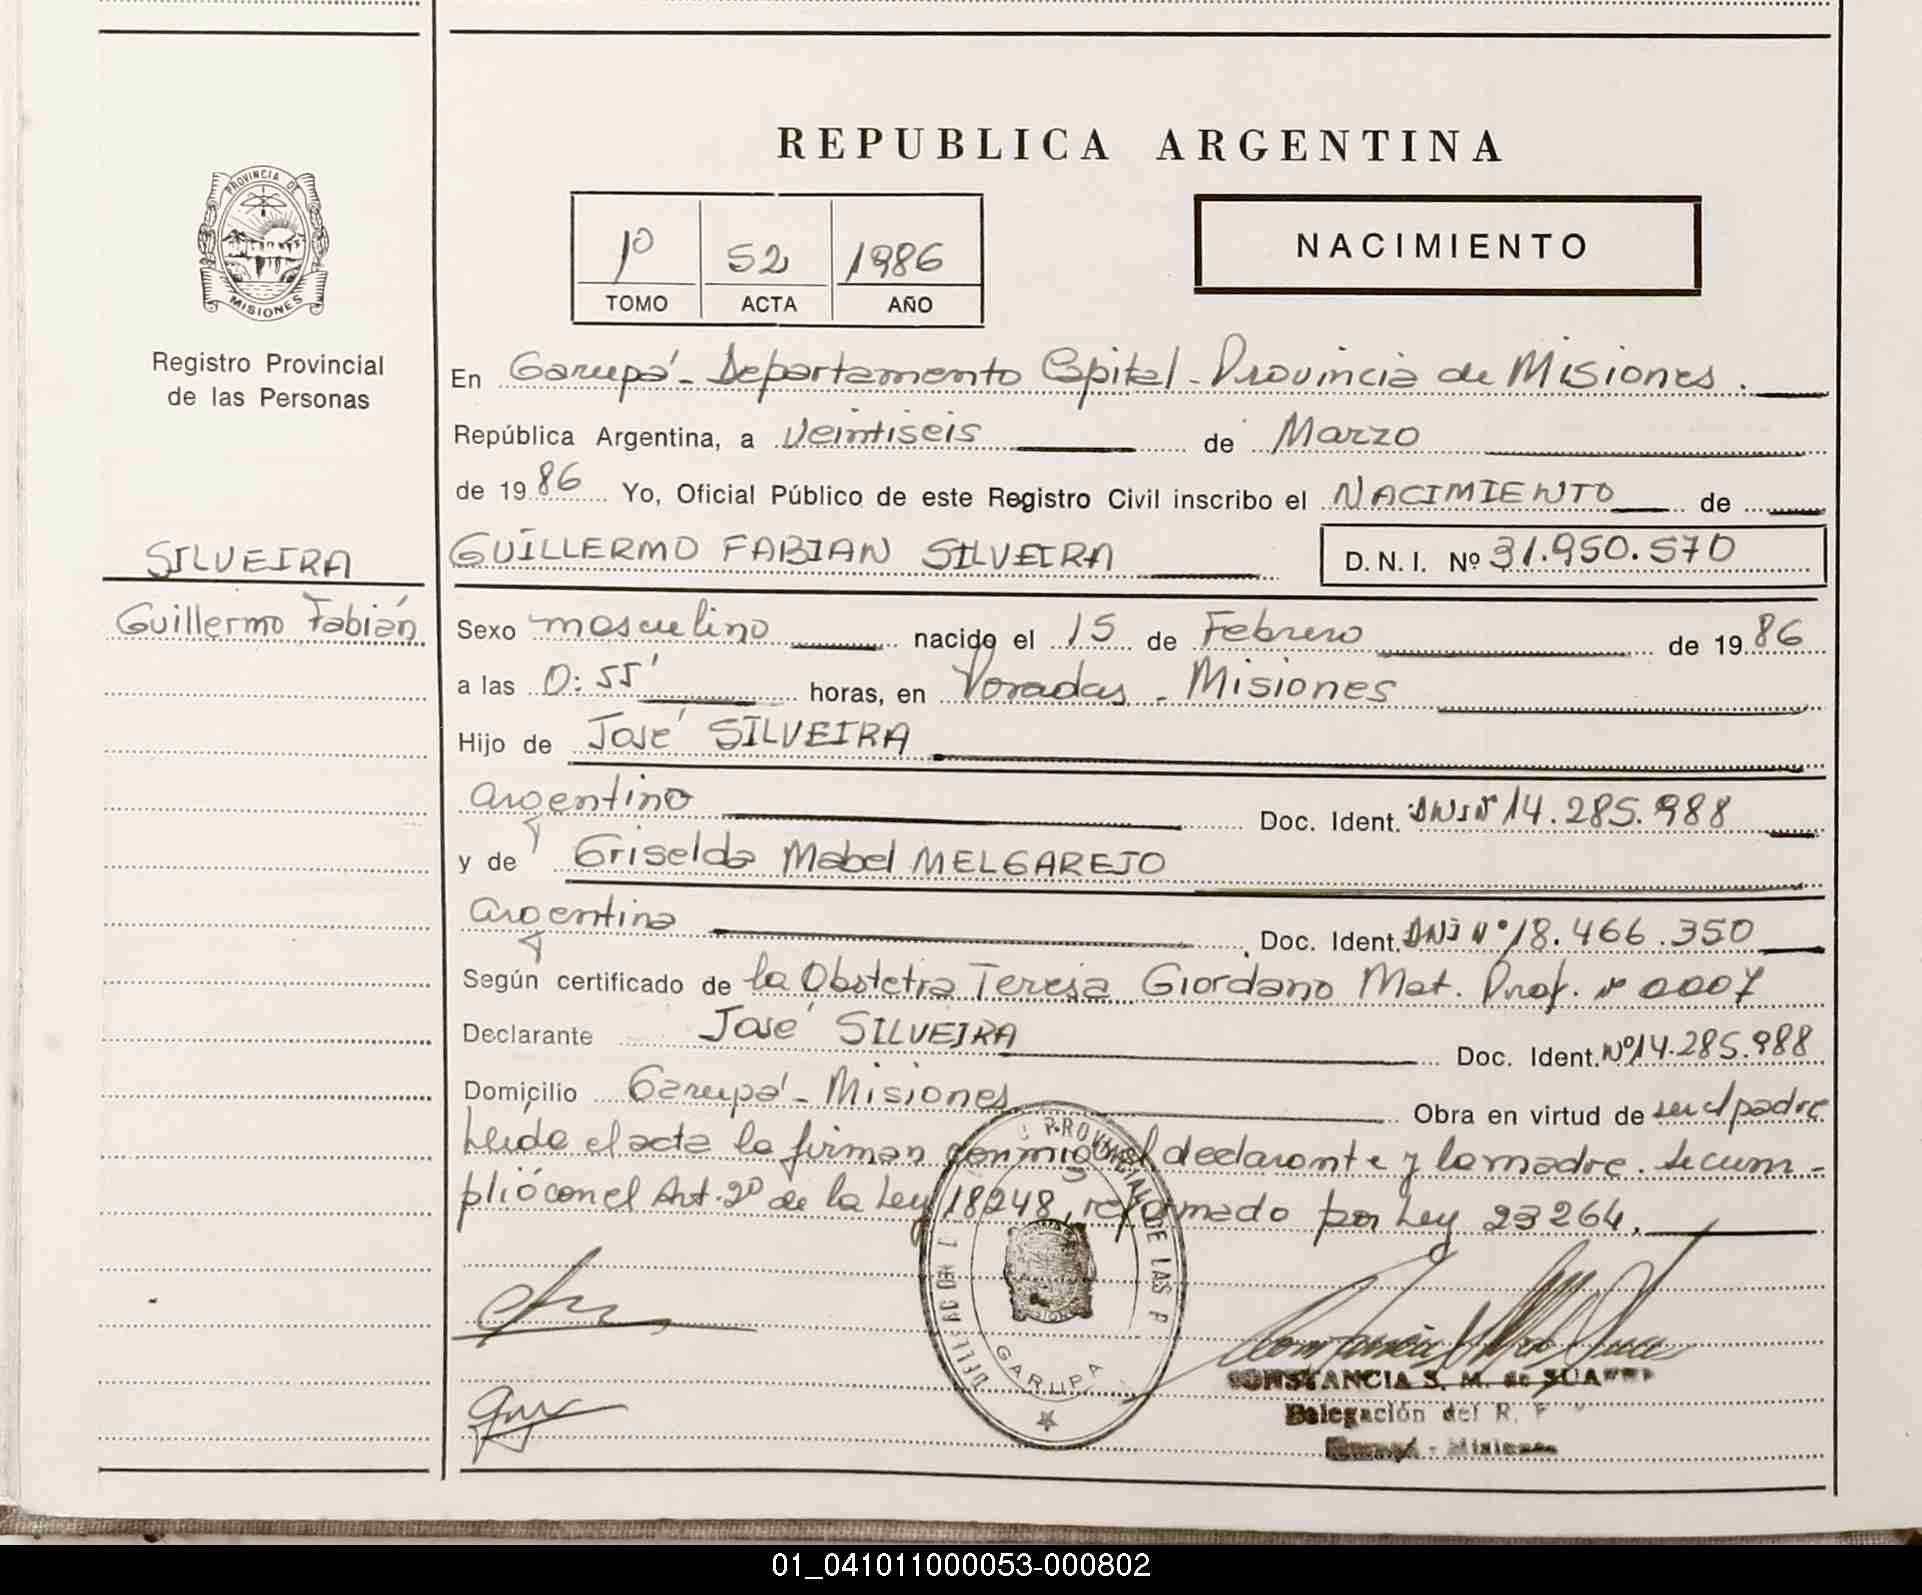 REPUBLICA ARGENTINA
PROVINCIA DE
MISIONES
Registro Provincial
de las Personas
1º 52 1986
TOMO ACTA AÑO
NACIMIENTO
En Garupá - Departamento Capital - Provincia de Misiones.
República Argentina, a Veintiseis de Marzo
de 1986 Yo, Oficial Público de este Registro Civil inscribo el NACIMIENTO de
SILVEIRA
Guillermo Fabián
GUILLERMO FABIAN SILVEIRA D.N.I. Nº 31.950.570
Sexo masculino nacido el 15 de Febrero de 1986
a las 0:55' horas, en Posadas - Misiones
Hijo de José SILVEIRA
argentino Doc. Ident. DNI Nº 14.285.988
y de Griselda Mabel MELGAREJO
argentina Doc. Ident. DNI Nº 18.466.350
Según certificado de la Obstetra Teresa Giordano Mat. Prof. nº 0007
Declarante José SILVEIRA Doc. Ident. Nº 14.285.988
Domicilio Garupá - Misiones Obra en virtud de ser el padre
Leída el acta la firman conmigo el declarante y la madre. Se cum-
plió con el Art. 2º de la Ley 18248, reformado por Ley 23264.
PROVINCIAL DE LAS P
GARUPA
CONSTANCIA S. M. de SUA
Delegación del R.
Misiones
01_041011000053-000802